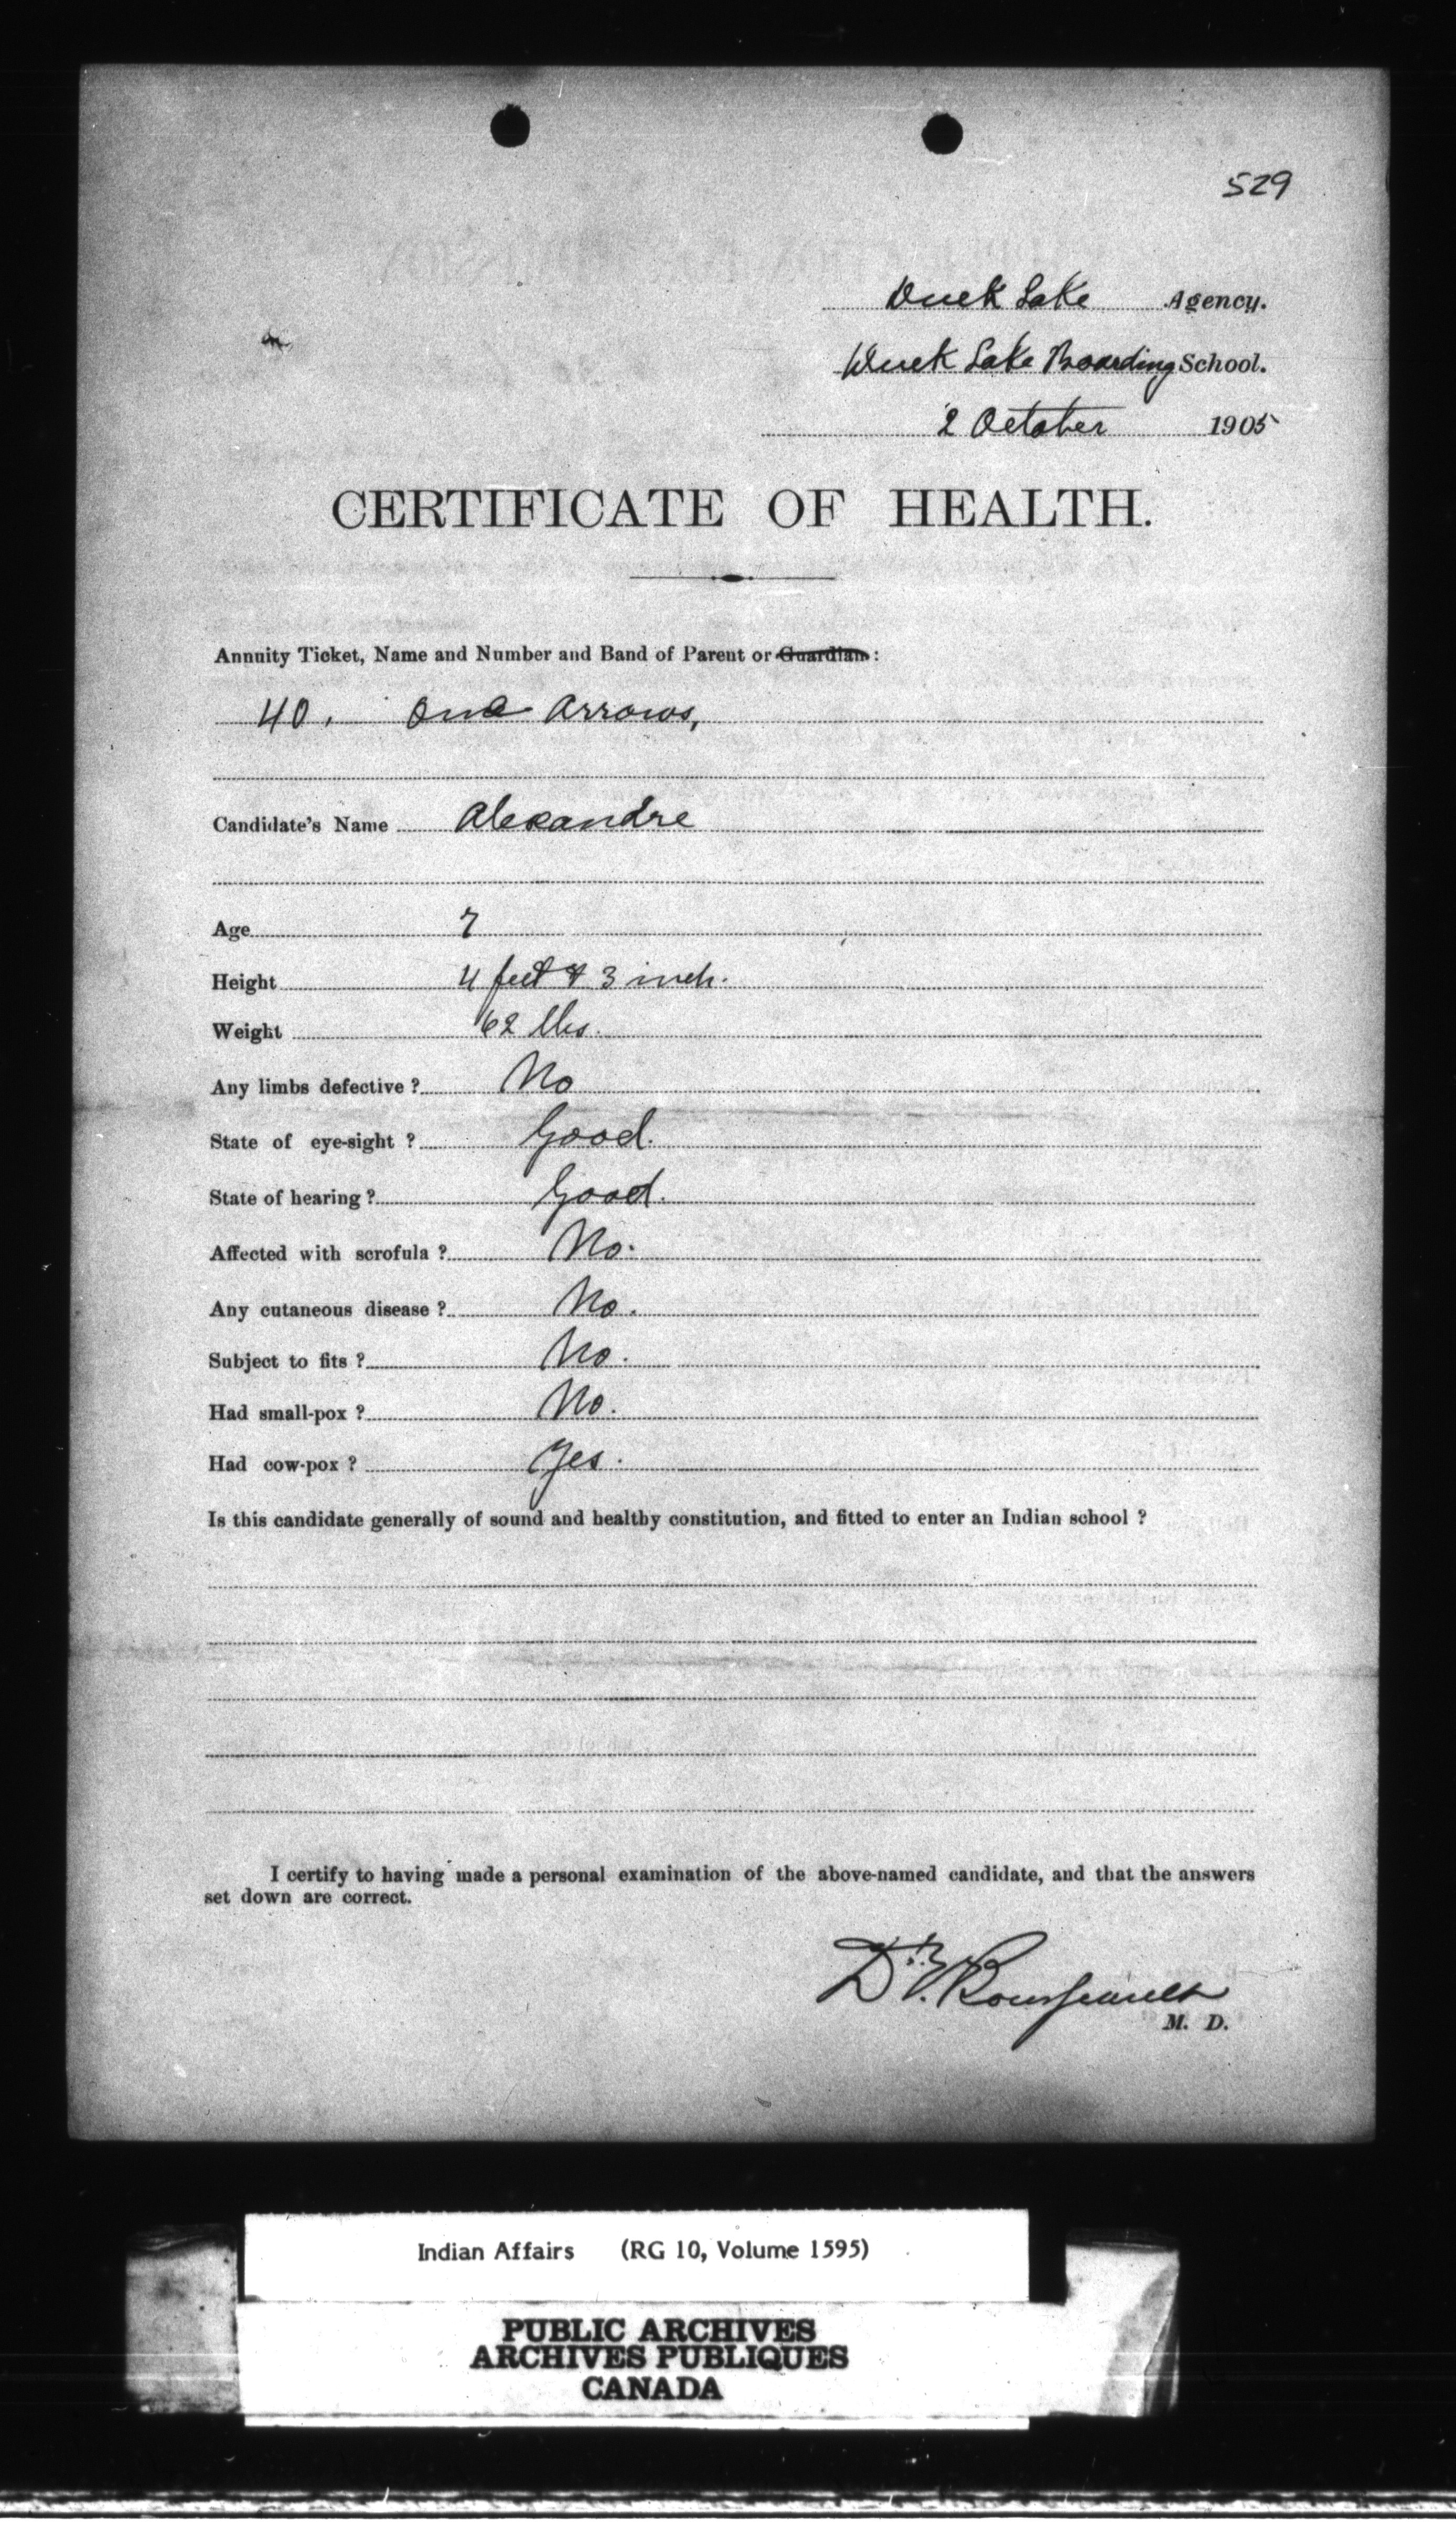 529
Duck Lake Agency.
Duck Lake Boarding School.
2 October 1905
CERTIFICATE OF HEALTH.
Annuity Ticket, Name and Number and Band of Parent or Guardian :
40. One Arrows,
Candidate's Name Alexandre
Age 7
Height 4 feet & 3 inch.
Weight 62 lbs.
Any limbs defective ? No
State of eye-sight ? Good.
State of hearing ? Good.
Affected with scrofula ? No.
Any cutaneous disease ? No.
Subject to fits ? No.
Had small-pox ? No.
Had cow-pox ? Yes.
Is this candidate generally of sound and healthy constitution, and fitted to enter an Indian school ?
I certify to having made a personal examination of the above-named candidate, and that the answers
set down are correct.
M. D.
Indian Affairs (RG 10, Volume 1595)
PUBLIC ARCHIVES
ARCHIVES PUBLIQUES
CANADA